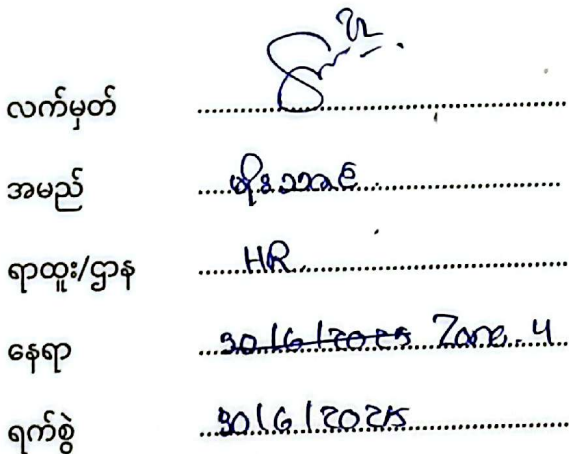 လက်မှတ် ....................
အမည် .....စိုးသာဇင်....................
ရာထူး/ဌာန ......HR....................
နေရာ ....30/6/2025 Zone-4
ရက်စွဲ ....30/6/2025....................